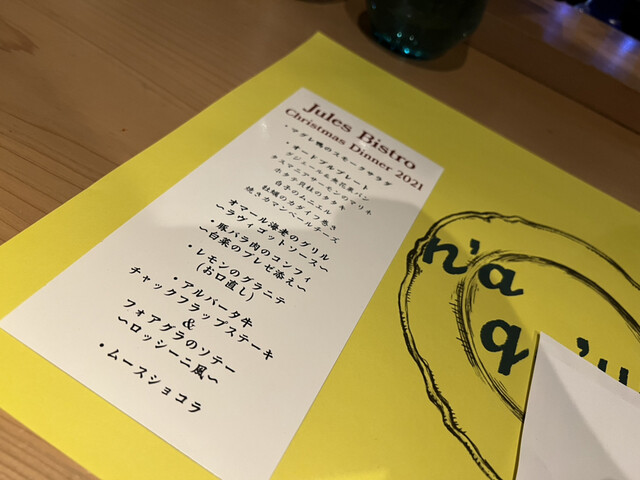 Jules Bistro
Christmas Dinner 2021
・マグレ鴨のスモークサラダ
・オードブルプレート
タスマニアサーモンのマリネ
ホタテ貝柱のタタキ
白子のムニエル
牡蠣のカダイフ巻き
焼きカマンベールチーズ
オマール海老のグリル
〜ラヴィゴットソース〜
・豚バラ肉のコンフィ
〜白菜のブレゼ添え〜
・レモンのグラニテ
(お口直し)
・アルバータ牛
チャックフラップステーキ
&
フォアグラのソテー
〜ロッシーニ風〜
・ムースショコラ
n'a
q